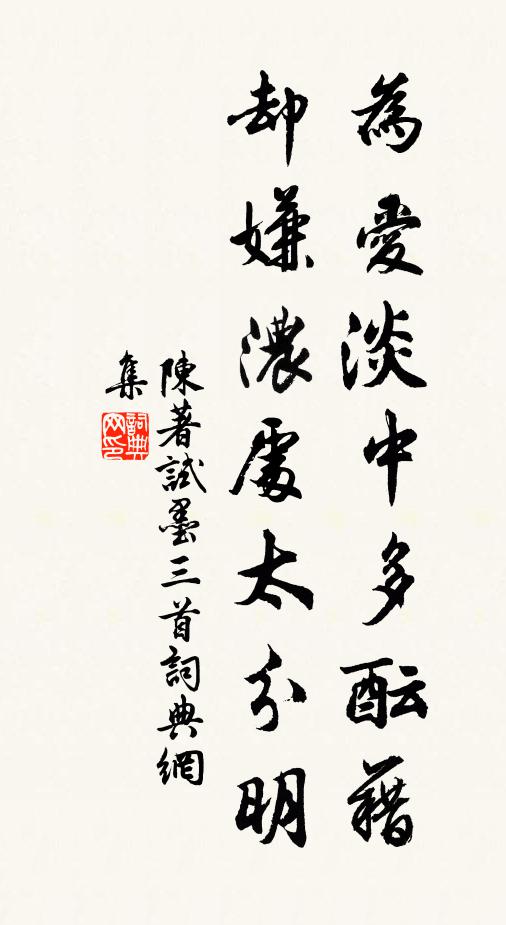 為愛淡中多醖藉
却嫌濃處太分明
陳著試墨三首詞典網
集
詞典
网印